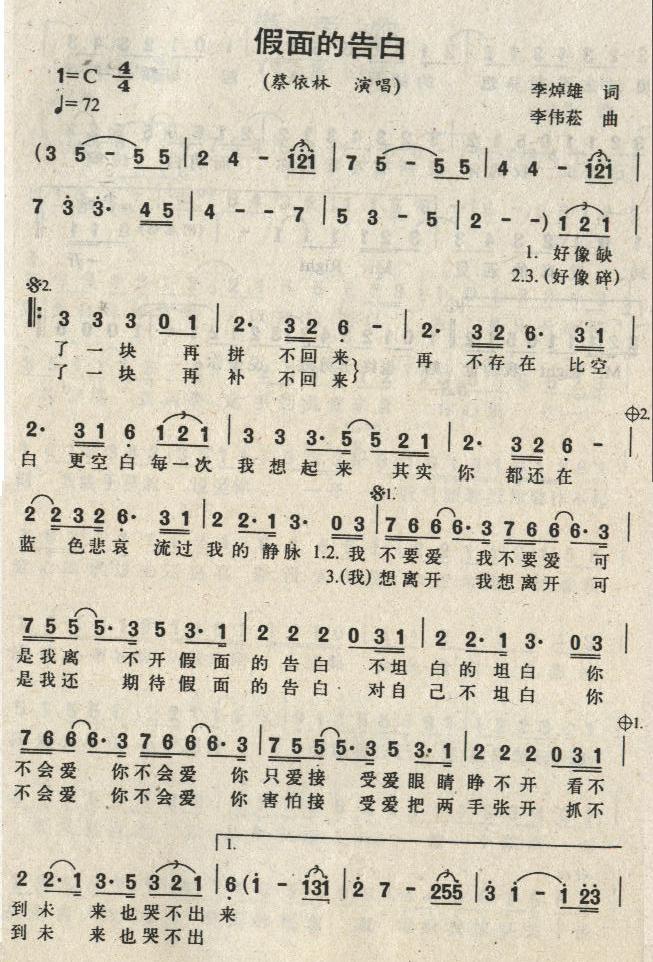 假面的告白
1=C 4/4
(蔡依林 演唱)
♩=72
李焯雄 词
李伟菘 曲
(3 5 - 5 5 | 2 4 - 121 | 7 5 - 5 5 | 4 4 - 121 |
7 3 3· 4 5 | 4 - - 7 | 5 3 - 5 | 2 - - ) 1 2 1 |
1. 好像缺
2.3. (好像碎)
𝄋2.
‖: 3 3 3 0 1 | 2· 3 2 6 - | 2· 3 2 6· 3 1 |
了一块 再 拼 不回来 再 不存在 比空
了一块 再 补 不回来}
⊕2.
2· 3 1 6 1 2 1 | 3 3 3· 5 5 2 1 | 2· 3 2 6 - |
白 更空白每一次 我想起来 其实 你 都还在
𝄋1.
2 2 3 2 6· 3 1 | 2 2· 1 3· 0 3 | 7 6 6 6· 3 7 6 6 6· 3 |
蓝 色悲哀 流过 我的静脉 1.2. 我 不要爱 我不要爱 可
3.(我) 想离开 我想离开 可
7 5 5 5· 3 5 3· 1 | 2 2 2 0 3 1 | 2 2· 1 3· 0 3 |
是我离 不开假面 的告白 不坦 白的坦白 你
是我还 期待假面 的告白 对自 己不坦白 你
⊕1.
7 6 6 6· 3 7 6 6 6· 3 | 7 5 5 5· 3 5 3· 1 | 2 2 2 0 3 1 |
不会爱 你不会爱 你 只爱接 受爱眼睛 睁不开 看不
不会爱 你不会爱 你 害怕接 受爱把两 手张开 抓不
1.
2 2· 1 3· 5 3 2 1 | 6 (1 - 131 | 2 7 - 255 | 3 1 - 1 23 |
到未 来也哭不出 来
到未 来也哭不出